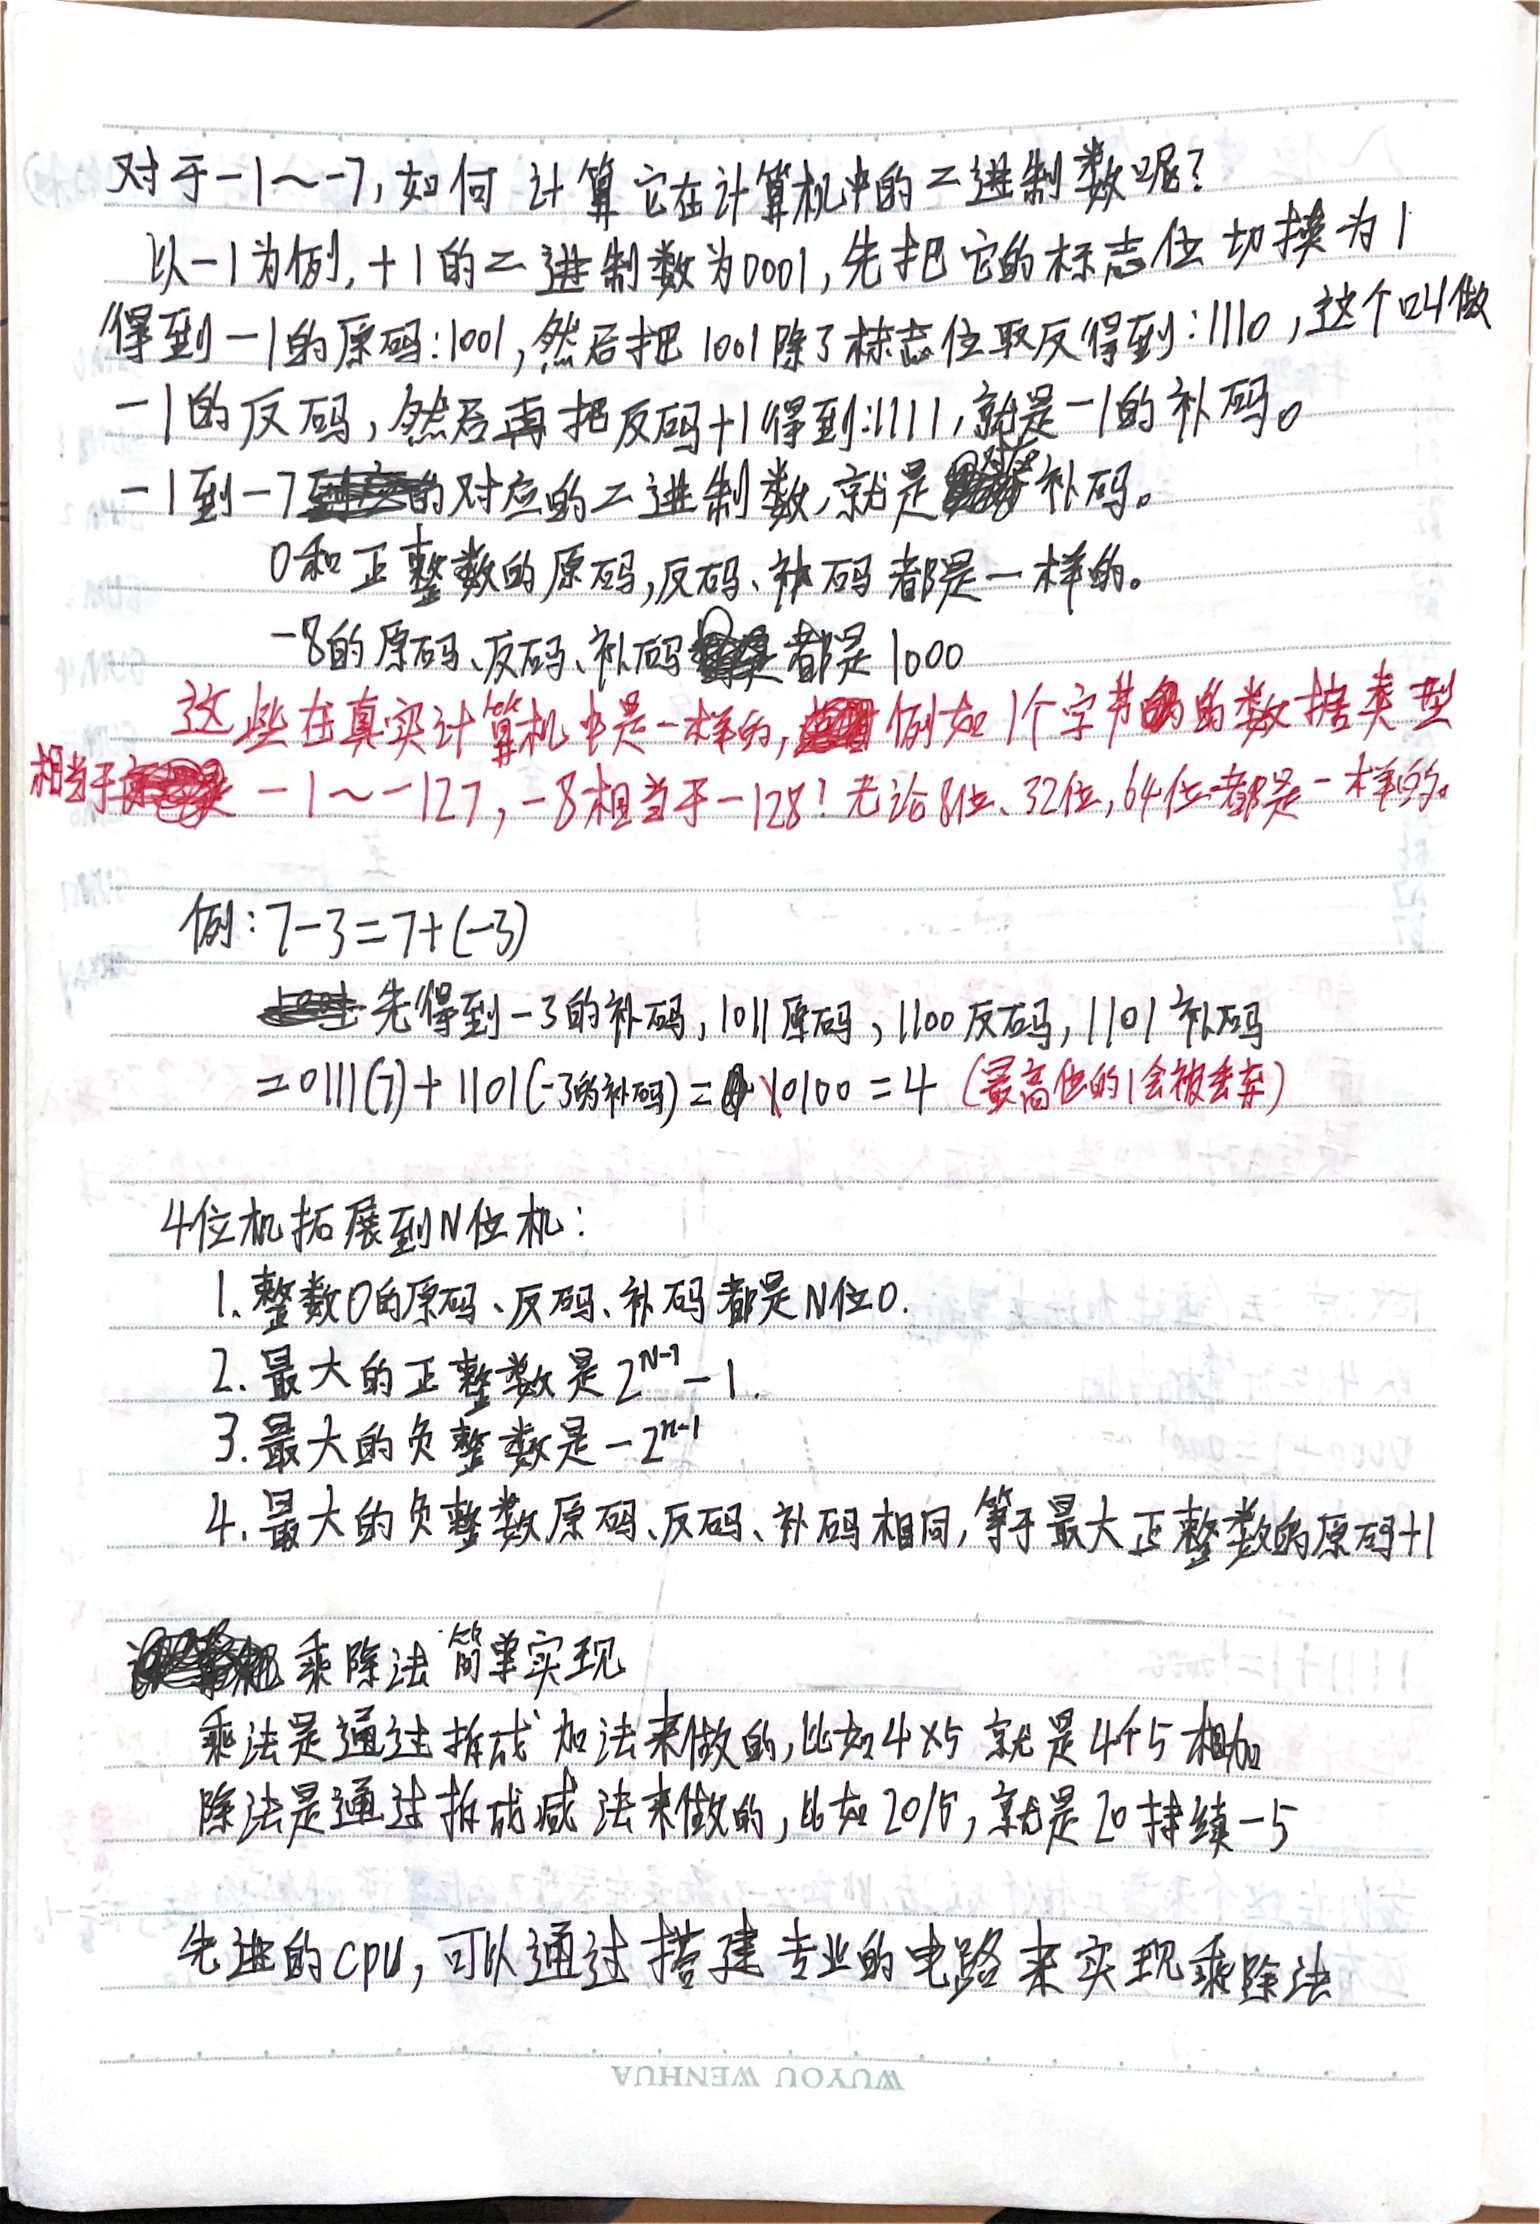 对于-1~-7,如何计算它在计算机中的二进制数呢?
以-1为例,+1的二进制数为0001,先把它的标志位切换为1
得到-1的原码:1001,然后把1001除了标志位取反得到:1110,这个叫做
-1的反码,然后再把反码+1得到:1111,就是-1的补码。
-1到-7对应的二进制数,就是补码。
0和正整数的原码,反码、补码都是一样的。
-8的原码、反码、补码都是1000
这些在真实计算机中是一样的,例如1个字节的数据类型
相当于-1~-127,-8相当于-128!无论8位、32位,64位都是一样的。
例:7-3=7+(-3)
先得到-3的补码,1011原码,1100反码,1101补码
=0111(7)+1101(-3的补码)=10100=4(最高位的1会被丢弃)
4位机拓展到N位机:
1.整数0的原码、反码、补码都是N位0.
2.最大的正整数是2^{N-1}-1.
3.最大的负整数是-2^{n-1}
4.最大的负整数原码、反码、补码相同,等于最大正整数的原码+1
乘除法简单实现
乘法是通过拆成加法来做的,比如4×5就是4个5相加
除法是通过拆成减法来做的,比如20/5,就是20持续-5
先进的CPU,可以通过搭建专业的电路来实现乘除法
WUYOU WENHUA